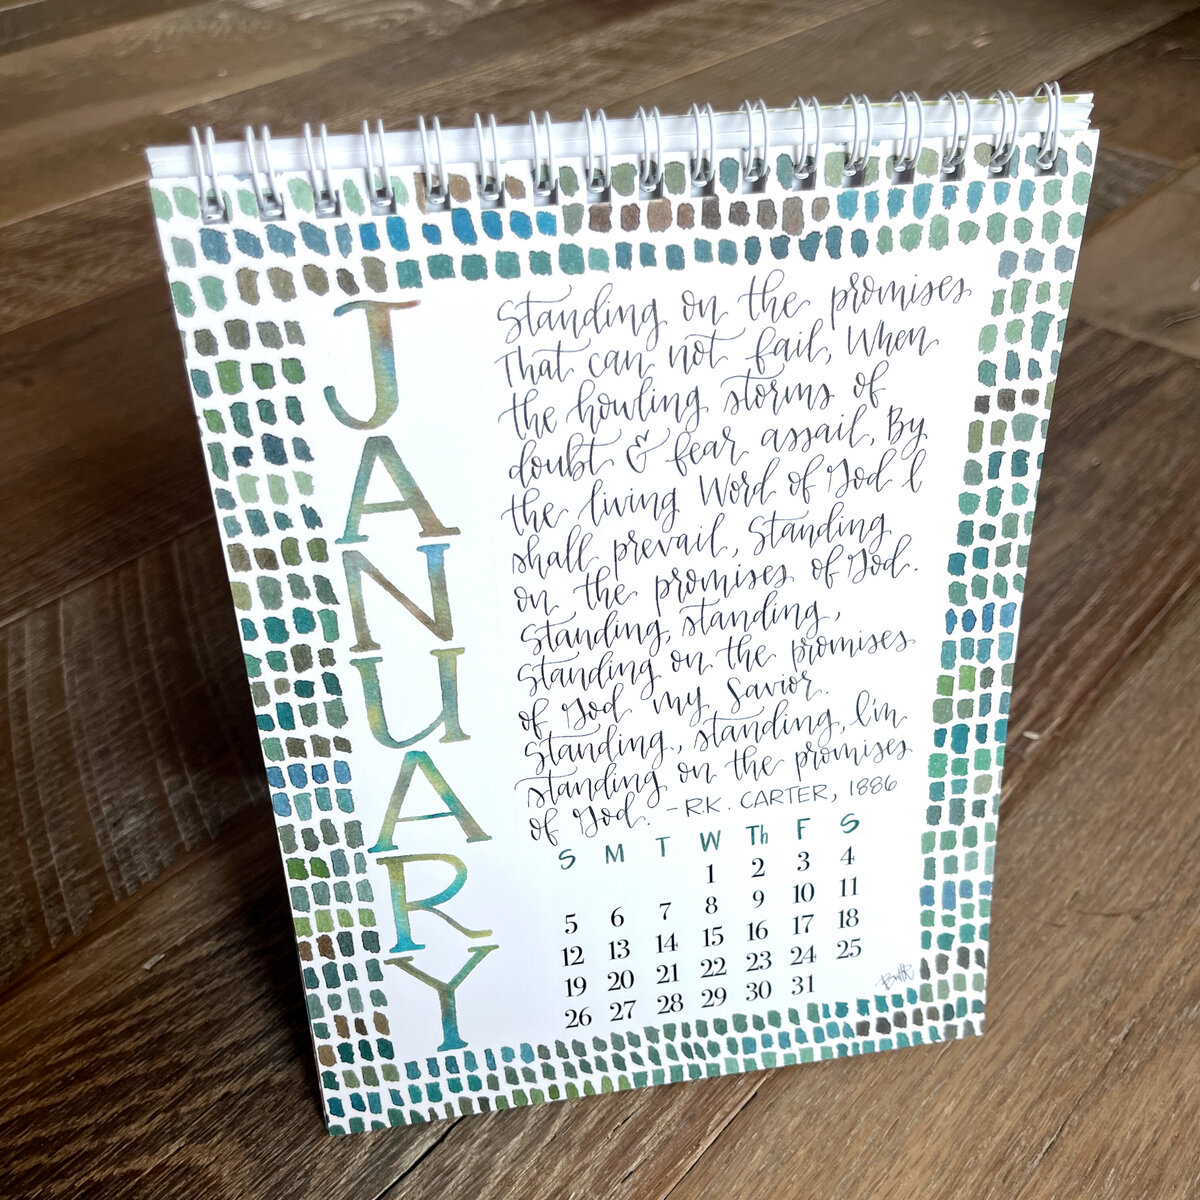 JANUARY
Standing on the promises
That can not fail, When
the howling storms of
doubt & fear assail, By
the living Word of God I
shall prevail, Standing
on the promises of God.
Standing, standing,
Standing on the promises
of God my Savior.
Standing, standing, I'm
standing on the promises
of God. - R.K. CARTER, 1886
S M T W Th F S
1 2 3 4
5 6 7 8 9 10 11
12 13 14 15 16 17 18
19 20 21 22 23 24 25
26 27 28 29 30 31